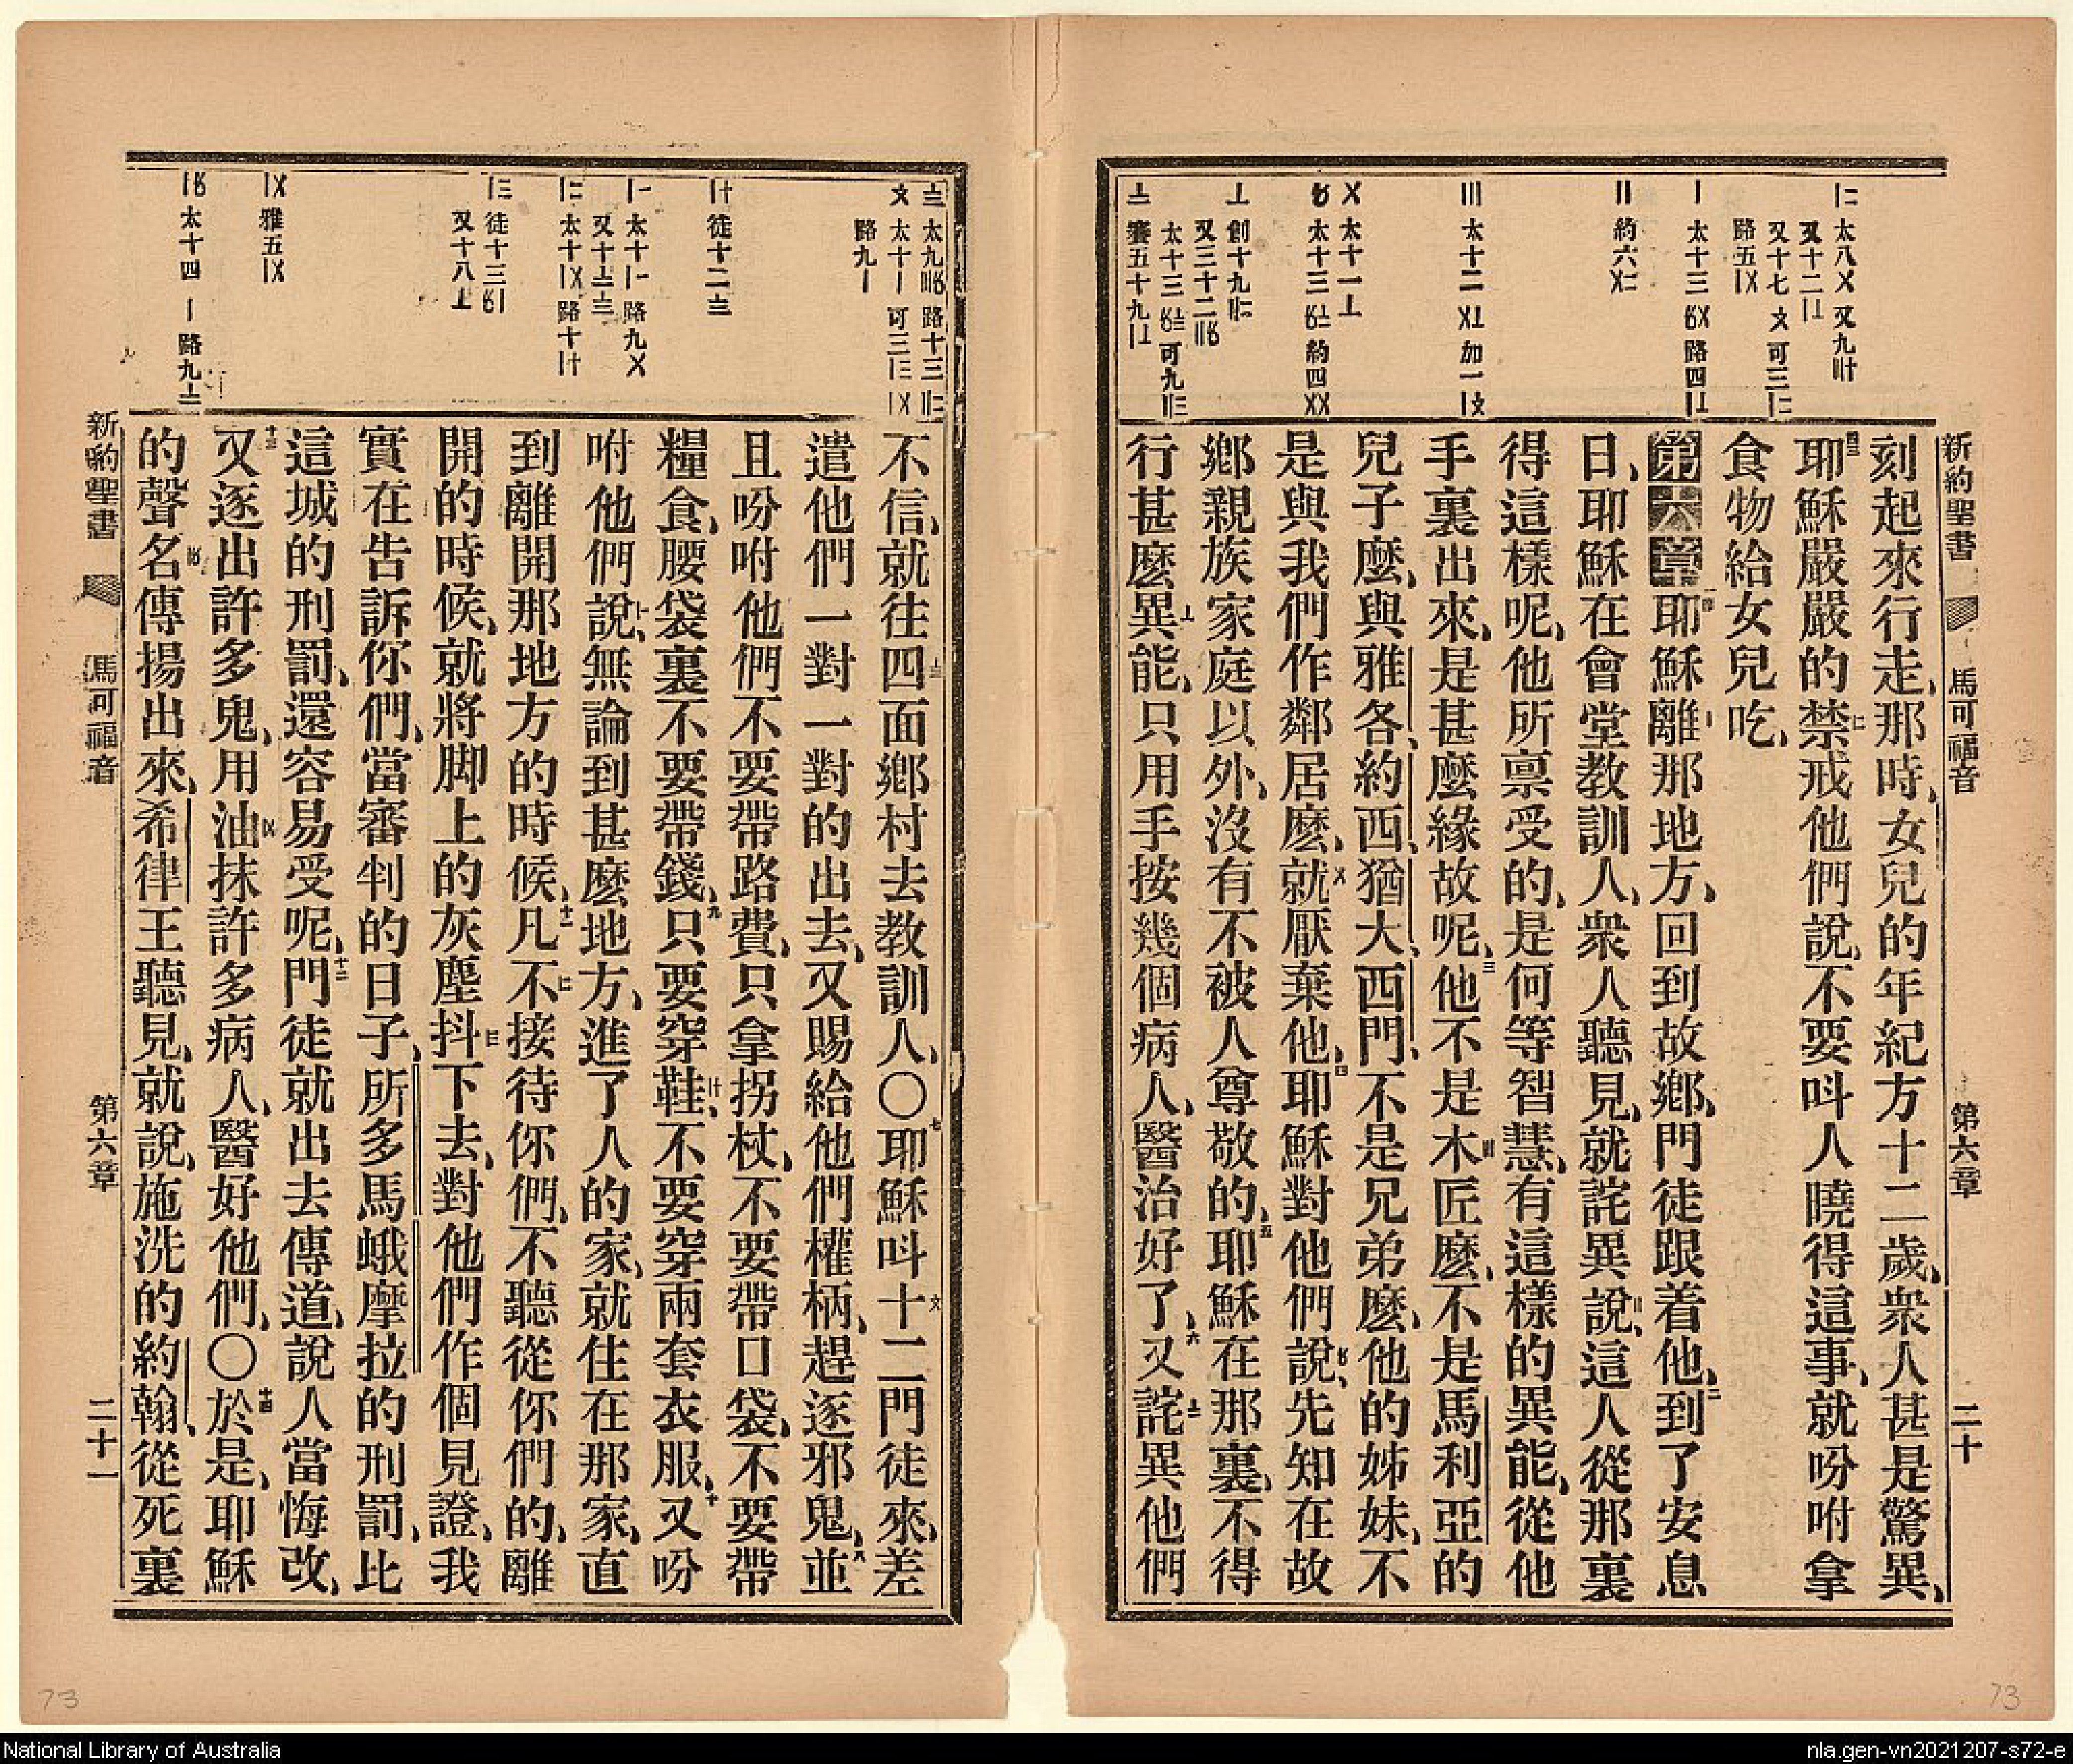 新約聖書 馬可福音 第六章 二十
刻起來行走、那時、女兒的年紀方十二歲、衆人甚是驚異、
耶穌嚴嚴的禁戒他們說、不要呌人曉得這事、就吩咐拿
食物給女兒吃、
第六章 耶穌離那地方、回到故鄉、門徒跟着他、到了安息
日、耶穌在會堂教訓人、衆人聽見、就詫異說、這人從那裏
得這樣呢、他所禀受的、是何等智慧、有這樣的異能、從他
手裏出來、是甚麼緣故呢、他不是木匠麼、不是馬利亞的
兒子麼、與雅各、約西、猶大、西門、不是兄弟麼、他的姊妹、不
是與我們作鄰居麼、就厭棄他、耶穌對他們說、先知在故
鄉親族家庭以外、沒有不被人尊敬的、耶穌在那裏、不得
行甚麼異能、只用手按幾個病人、醫治好了、又詫異他們
不信、就往四面鄉村去教訓人、〇耶穌呌十二門徒來、差
遣他們一對一對的出去、又賜給他們權柄、趕逐邪鬼、並
且吩咐他們不要帶路費、只拿拐杖、不要帶口袋、不要帶
糧食、腰袋裏不要帶錢、只要穿鞋、不要穿兩套衣服、又吩
咐他們說、無論到甚麼地方、進了人的家、就住在那家、直
到離開那地方的時候、凡不接待你們、不聽從你們的、離
開的時候、就將脚上的灰塵抖下去、對他們作個見證、我
實在告訴你們、當審判的日子、所多馬蛾摩拉的刑罰、比
這城的刑罰、還容易受呢、門徒就出去傳道、說人當悔改、
又逐出許多鬼、用油抹許多病人、醫好他們、〇於是、耶穌
的聲名傳揚出來、希律王聽見、就說、施洗的約翰、從死裏
新約聖書 馬可福音 第六章 二十一
73
73
National Library of Australia
nla.gen-vn2021207-s72-e